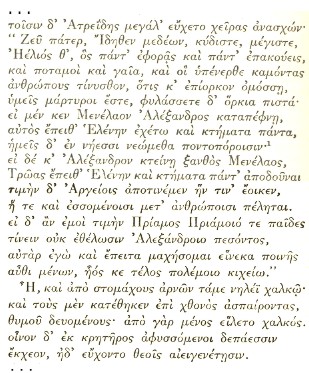 ...
τοῖσιν δ' Ἀτρεΐδης μεγάλ' εὔχετο χεῖρας ἀνασχών·
“ Ζεῦ πάτερ, Ἴδηθεν μεδέων, κύδιστε, μέγιστε,
Ἠέλιός θ', ὃς πάντ' ἐφορᾷς καὶ πάντ' ἐπακούεις,
καὶ ποταμοὶ καὶ γαῖα, καὶ οἳ ὑπένερθε καμόντας
ἀνθρώπους τίνυσθον, ὅτις κ' ἐπίορκον ὀμόσσῃ,
ὑμεῖς μάρτυροι ἔστε, φυλάσσετε δ' ὅρκια πιστά·
εἰ μέν κεν Μενέλαον Ἀλέξανδρος καταπέφνῃ,
αὐτὸς ἔπειθ' Ἑλένην ἐχέτω καὶ κτήματα πάντα,
ἡμεῖς δ' ἐν νήεσσι νεώμεθα ποντοπόροισιν·¹
εἰ δέ κ' Ἀλέξανδρον κτείνῃ ξανθὸς Μενέλαος,
Τρῶας ἔπειθ' Ἑλένην καὶ κτήματα πάντ' ἀποδοῦναι
τιμὴν δ' Ἀργείοις ἀποτινέμεν ἥν τιν' ἔοικεν,
ἥ τε καὶ ἐσσομένοισι μετ' ἀνθρώποισι πέληται.
εἰ δ' ἂν ἐμοὶ τιμὴν Πρίαμος Πριάμοιό τε παῖδες
τίνειν οὐκ ἐθέλωσιν Ἀλεξάνδροιο πεσόντος,
αὐτὰρ ἐγὼ καὶ ἔπειτα μαχήσομαι εἵνεκα ποινῆς
αὖθι μένων, ἧός κε τέλος πολέμοιο κιχείω.”
Ἦ, καὶ ἀπὸ στομάχους ἀρνῶν τάμε νηλέϊ χαλκῷ·
καὶ τοὺς μὲν κατέθηκεν ἐπὶ χθονὸς ἀσπαίροντας,
θυμοῦ δευομένους· ἀπὸ γὰρ μένος εἵλετο χαλκός.
οἶνον δ' ἐκ κρητῆρος ἀφυσσόμενοι δεπάεσσιν
ἔκχεον, ἠδ' εὔχοντο θεοῖς αἰειγενέτῃσιν.
...